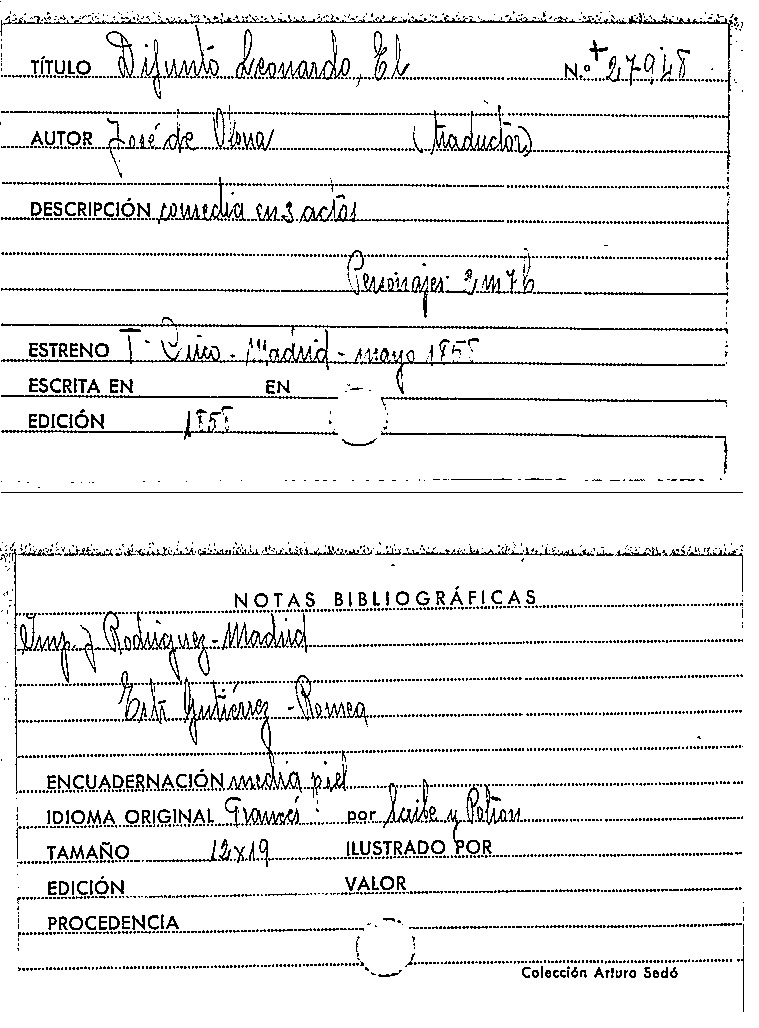 TÍTULO Difunto Leonardo, El N.º + 27948
AUTOR José de Olona (traductor)
DESCRIPCIÓN comedia en 3 actos
Personajes: 2 m 7 h
ESTRENO T. Circo - Madrid - mayo 1855
ESCRITA EN EN
EDICIÓN 1855
NOTAS BIBLIOGRÁFICAS
Imp. J. Rodriguez - Madrid
Gutiérrez - Romea
ENCUADERNACIÓN media piel
IDIOMA ORIGINAL Francés por y
TAMAÑO 12x19 ILUSTRADO POR
EDICIÓN VALOR
PROCEDENCIA
Colección Arturo Sedó